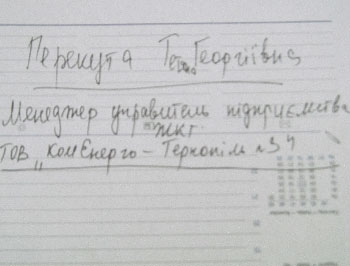 Перекута Георгіївна
Менеджер управитель підприємства
ЖКГ
ТОВ „КомЕнерго – Тернопіль"